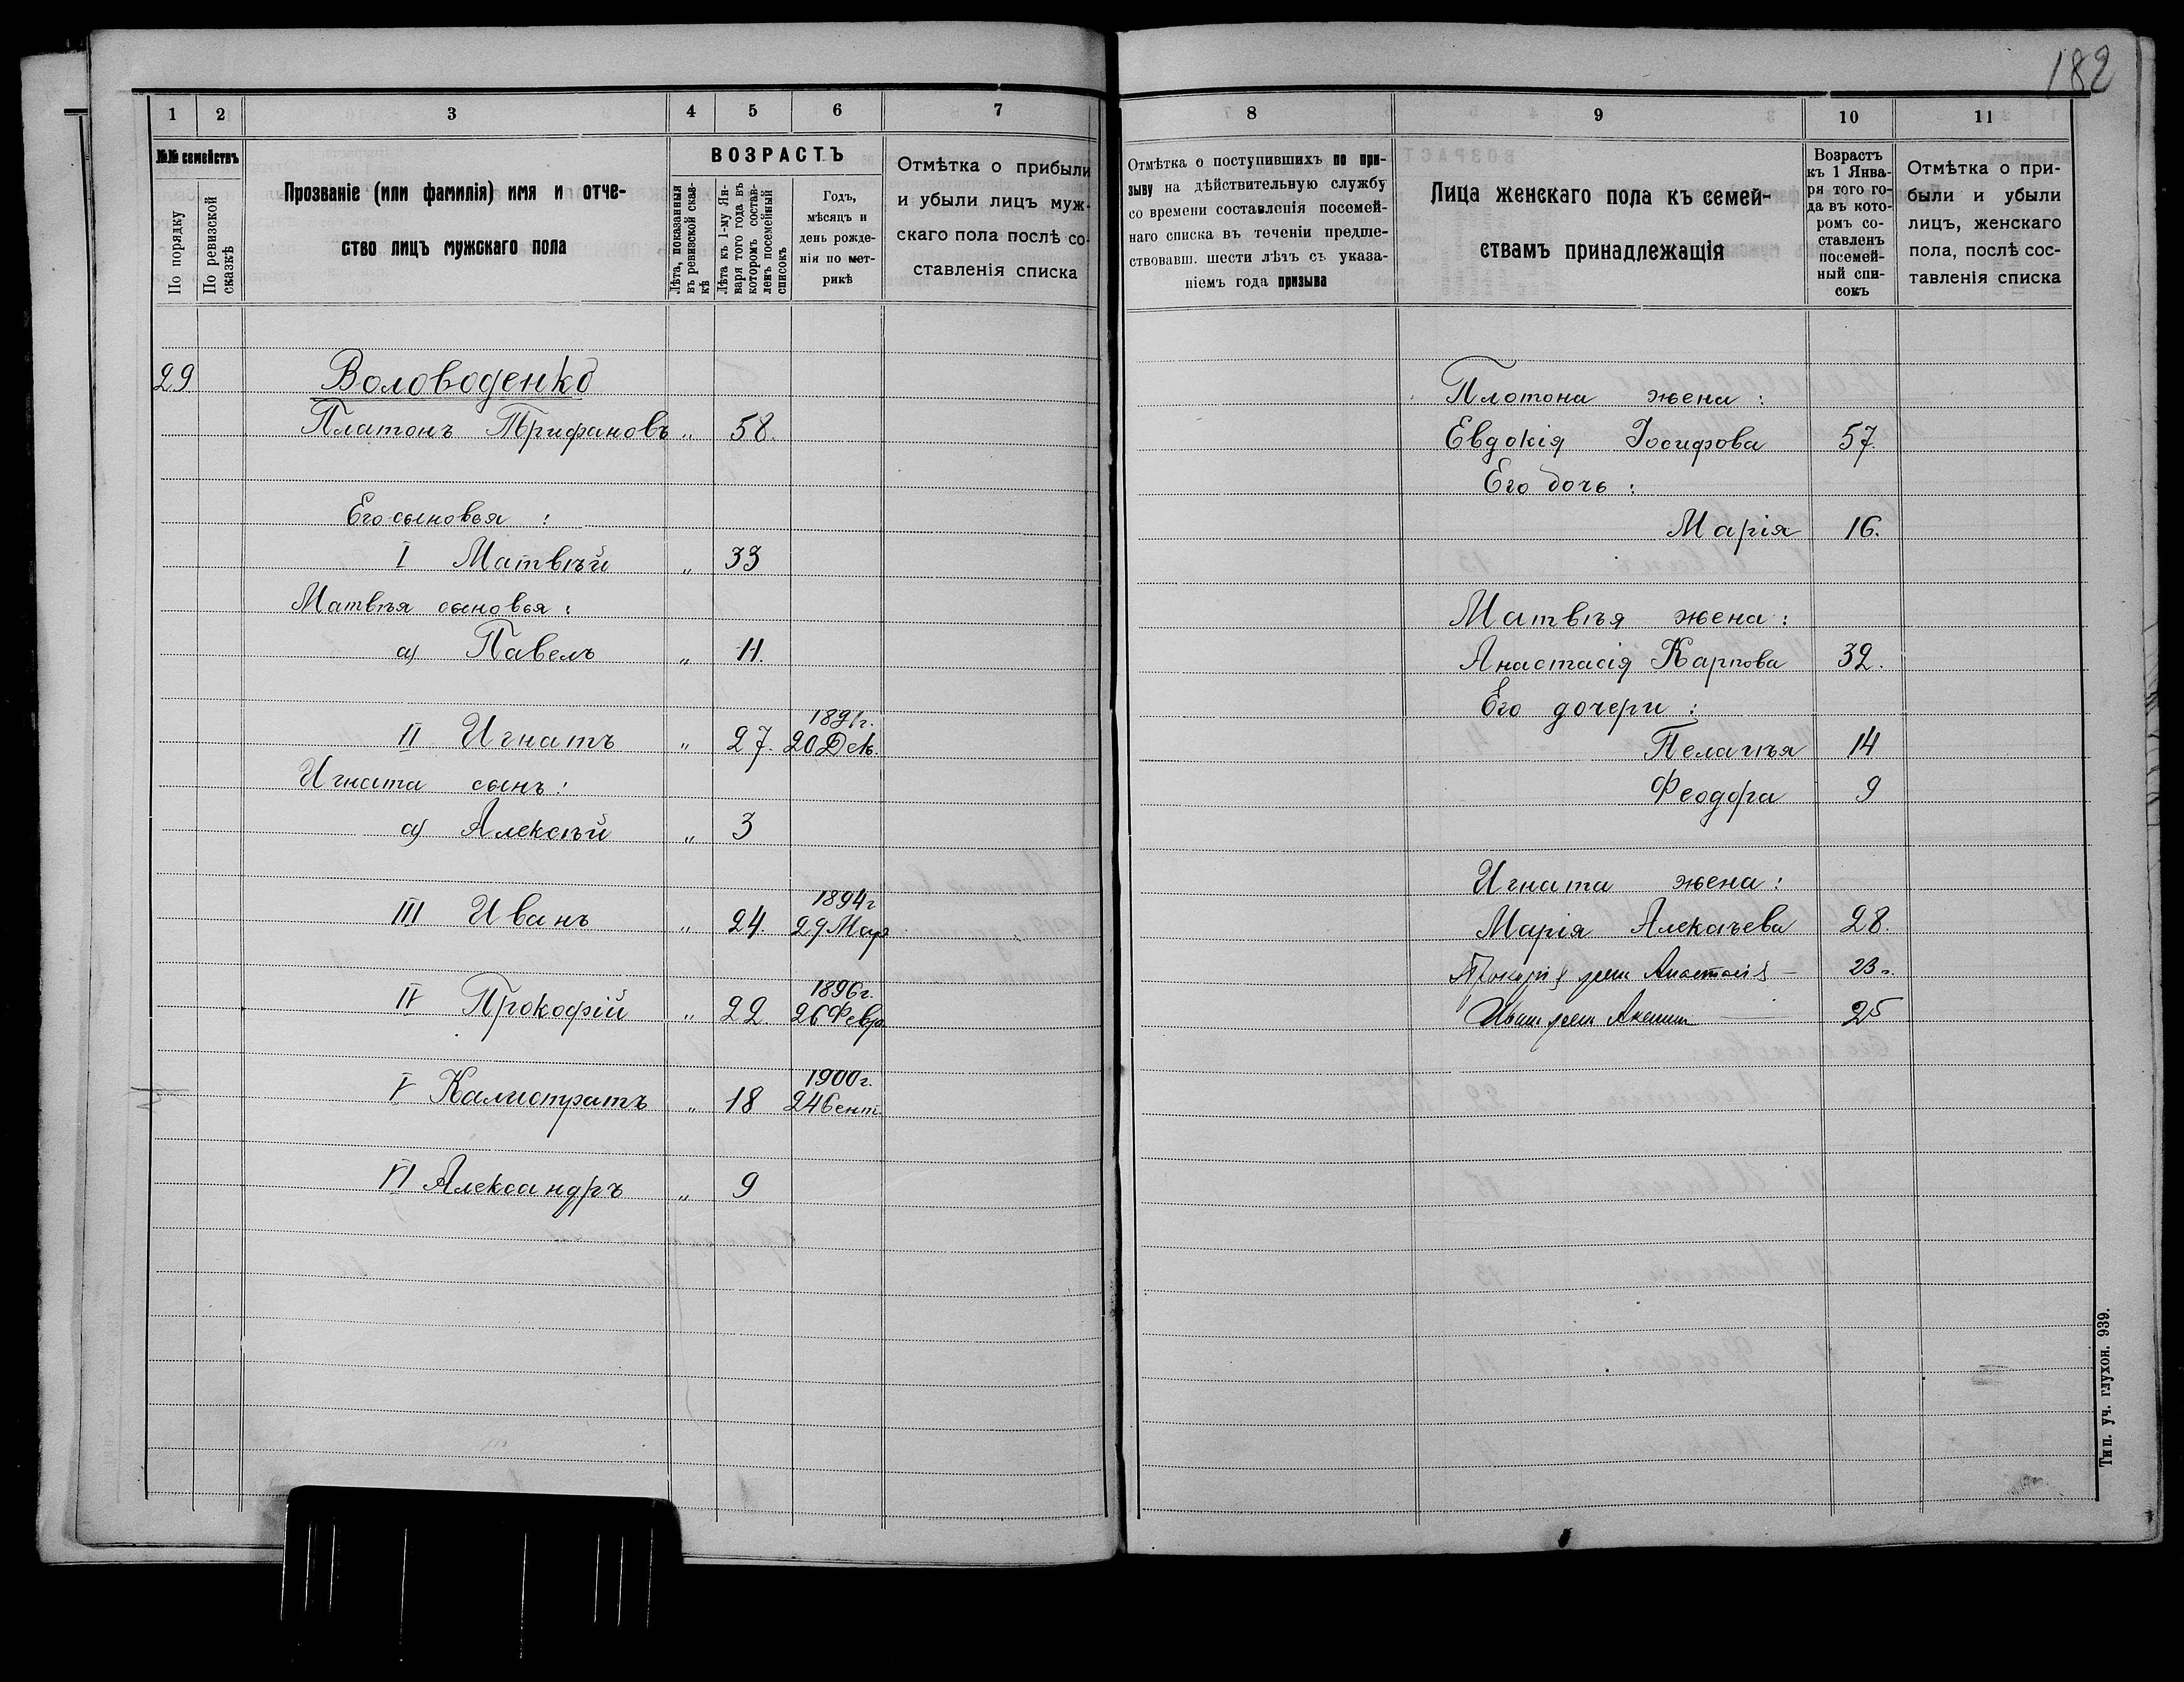 182
1 2 3 4 5 6 7
№№ семействъ
По порядку
По ревизской сказкѣ
Прозваніе (или фамилія) имя и отче-
ство лицъ мужскаго пола
ВОЗРАСТЪ
Лѣта, показанныя
въ ревизской сказ-
кѣ
Лѣта къ 1-му Ян-
варя того года въ
которомъ состав-
ленъ посемейный
списокъ
Годъ,
мѣсяцъ и
день рожде-
нія по мет-
рикѣ
Отмѣтка о прибыли
и убыли лицъ муж-
скаго пола послѣ со-
ставленія списка
29 Воловоденко
Платонъ Трифановъ „ 58.
Его сыновья :
I Матвѣй „ 33
Матвѣя сыновья :
а) Павелъ „ 11.
1891 г.
II Игнатъ „ 27. 20 Дек.
Игната сынъ :
а) Алексѣй „ 3
1894 г
III Иванъ „ 24. 29 Мар
1896 г.
IV Прокофій „ 22 26 Февр
1900 г.
V Калистратъ „ 18 24 Сент
VI Александръ „ 9
8 9 10 11
Отмѣтка о поступившихъ по при-
зыву на дѣйствительную службу
со времени составленія посемей-
наго списка въ теченіи предше-
ствовавш. шести лѣтъ съ указа-
ніемъ года призыва
Лица женскаго пола къ семей-
ствамъ принадлежащія
Возрастъ
къ 1 Янва-
ря того го-
да въ кото-
ромъ со-
ставленъ
посемей-
ный спи-
сокъ
Отмѣтка о при-
были и убыли
лицъ, женскаго
пола, послѣ сос-
тавленія списка
Плотона жена :
Евдокія Іосифова 57.
Его дочь :
Марія 16.
Матвѣя жена :
Анастасія Карпова 32.
Его дочери :
Пелагѣя 14
Феодора 9
Игната жена :
Марія Алексѣева 28.
Анастасія — 23
25
Тип. уч. глухон. 939.